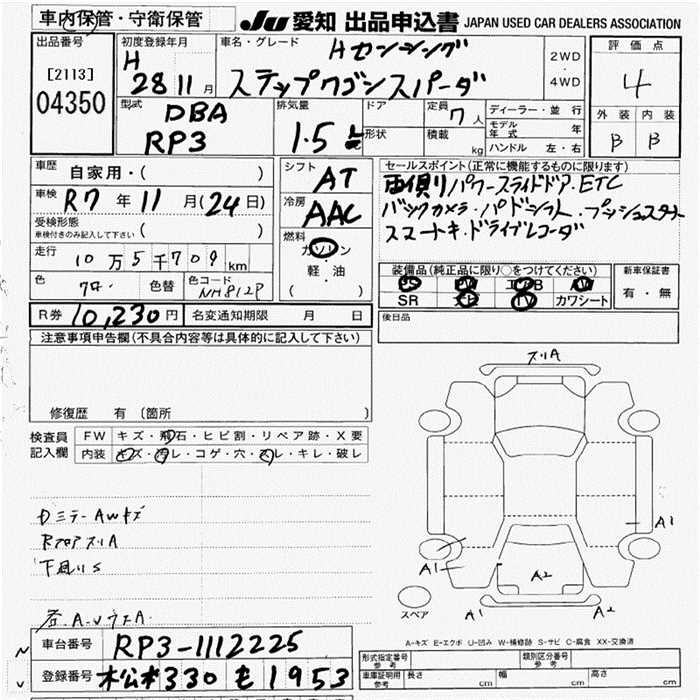 車内保管・守衛保管
JU 愛知 出品申込書 JAPAN USED CAR DEALERS ASSOCIATION
出品番号
[2113]
04350
初度登録年月
H
28 11 月
車名・グレード
Hセンシング
ステップワゴンスパーダ
2WD
・
4WD
評価点
4
外装 内装
B B
型式
DBA
RP3
排気量
1.5
ドア
形状
定員
7 人
積載
kg
ディーラー・並行
モデル年式 年
ハンドル 左・右
車歴
自家用・( )
車検
R7 年 11 月 (24日)
受検形態
車検付きのみ記入して下さい ( )
走行
10 万 5 千 709 km
色
色替
色コード
NH812P
シフト
AT
冷房
AAC
燃料
ガソリン
軽・油
( )
セールスポイント(正常に機能するものに限ります)
両側リパワースライドドア・ETC
バックカメラ・パドルシフト・プッシュスタート
スマートキ・ドライブレコーダ
装備品(純正品に限り○をつけてください)
PS PW エアB AW
SR ナビ TV カワシート
新車保証書
有・無
後日品
R券 10,230 円
名変通知期限 月 日
注意事項申告欄(不具合内容等は具体的に記入して下さい)
修復歴 有 (箇所 )
検査員
記入欄
FW キズ・飛石・ヒビ割・リペア跡・X要
内装 キズ・汚レ・コゲ・穴・スレ・キレ・破レ
DミラーAWキズ
RフロアスリA
下廻りS
スリA
A1
A1
A2
A1
A2
スペア
A-キズ E-エクボ U-凹み W-補修跡 S-サビ C-腐食 XX-交換済
車台番号 RP3-1112225
登録番号 松本 330 も 1953
型式指定番号
参考
類別区分番号
参考
車庫証明用
参考
長さ cm
幅 cm
高さ cm